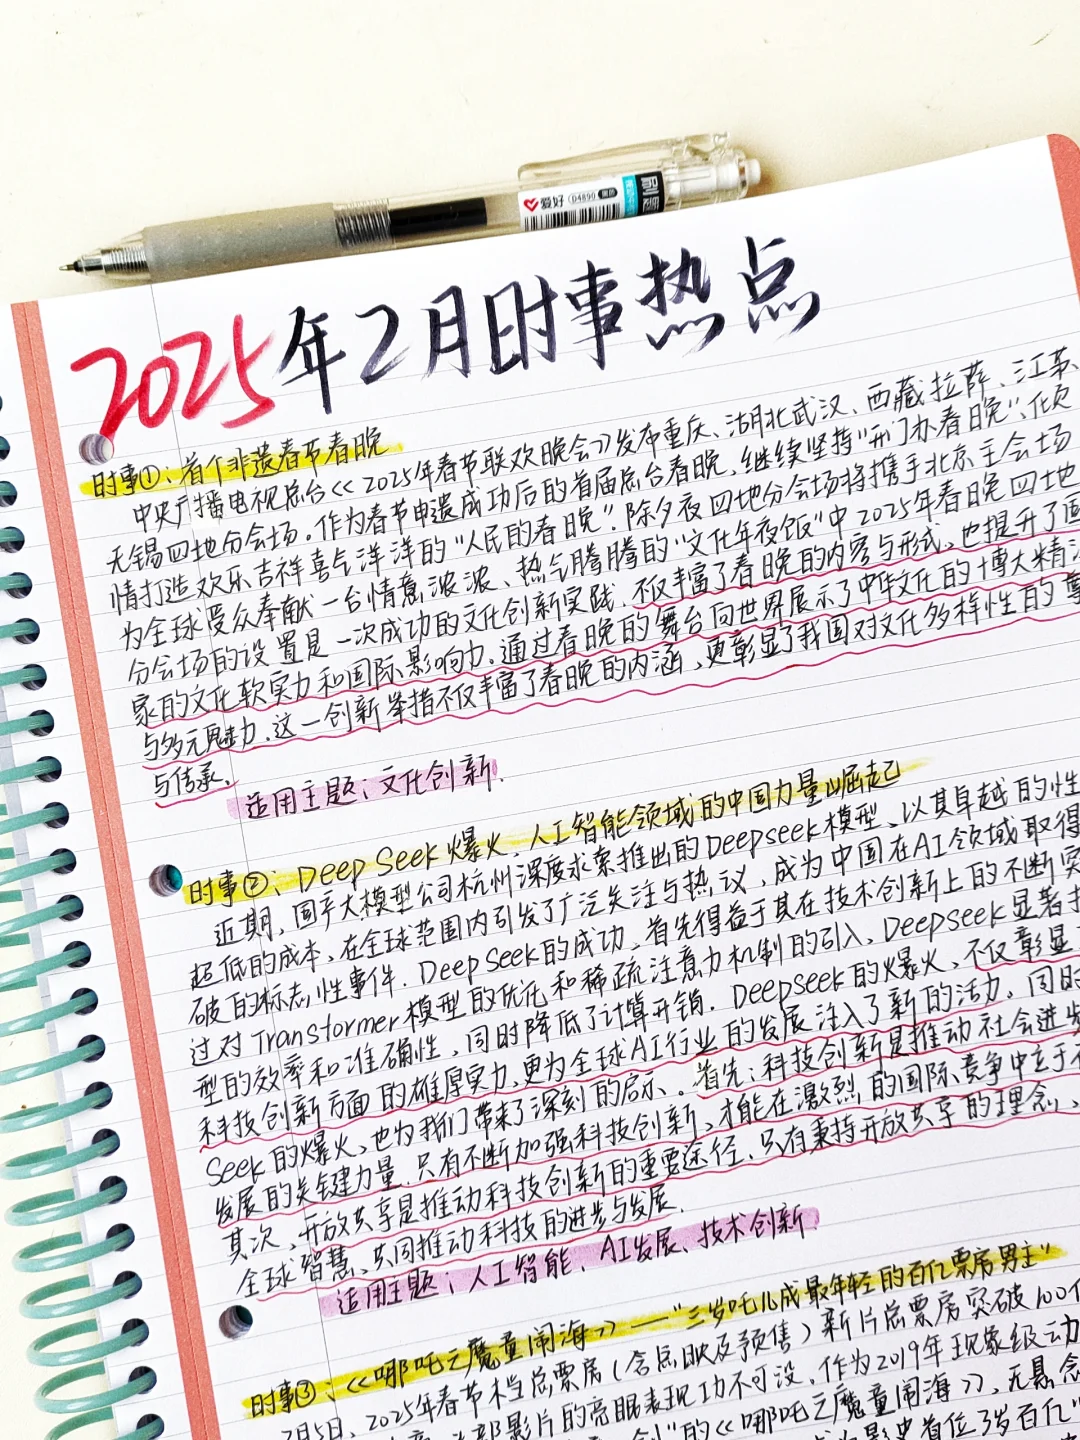 爱好 D4890
2025年2月时事热点
时事①：首个非遗春节春晚
中央广播电视总台《2025年春节联欢晚会》发布重庆、湖北武汉、西藏拉萨、江苏
无锡四地分会场。作为春节申遗成功后的首届总台春晚，继续坚持“开门办春晚”、
情打造欢乐吉祥喜气洋洋的“人民的春晚”。除夕夜四地分会场将携手北京主会场
为全球受众奉献一台情意浓浓、热气腾腾的“文化年夜饭”中2025年春晚四地
分会场的设置是一次成功的文化创新实践，不仅丰富了春晚的内容与形式，也提升了国
家的文化软实力和国际影响力。通过春晚的舞台向世界展示了中华文化的博大精深
与多元魅力。这一创新举措不仅丰富了春晚的内涵，更彰显了我国对文化多样性的尊
与传承。
适用主题：文化创新.
时事②：Deep Seek爆火，人工智能领域的中国力量崛起
近期，国产大模型公司杭州深度求索推出的Deepseek模型、以其卓越的性
超低的成本，在全球范围内引发了广泛关注与热议，成为中国在AI领域取得
破的标志性事件．Deep Seek的成功，首先得益于其在技术创新上的不断突
过对Transformer模型的优化和稀疏注意力机制的引入，Deepseek显著
型的效率和准确性，同时降低了计算开销．Deepseek的爆火，不仅彰显
科技创新方面的雄厚实力，更为全球AI行业的发展注入了新的活力。同时
Seek的爆火，也为我们带来了深刻的启示、。首先：科技创新是推动社会进步
发展的关键力量．只有不断加强科技创新，才能在激烈的国际竞争中立于
其次，开放共享是推动科技创新的重要途径．只有秉持开放共享的理念、
全球智慧，共同推动科技的进步与发展．
适用主题；人工智能、AI发展、技术创新
时事③：《哪吒之魔童闹海》——“三岁吒儿成最年轻的百亿票房男主”
2月5日，2025年春节档总票房（含点映及预售）新片总票房突破100亿
部影片的亮眼表现功不可没．作为2019年现象级动
的《哪吒之魔童闹海》，无悬念
影史首位3岁百亿“